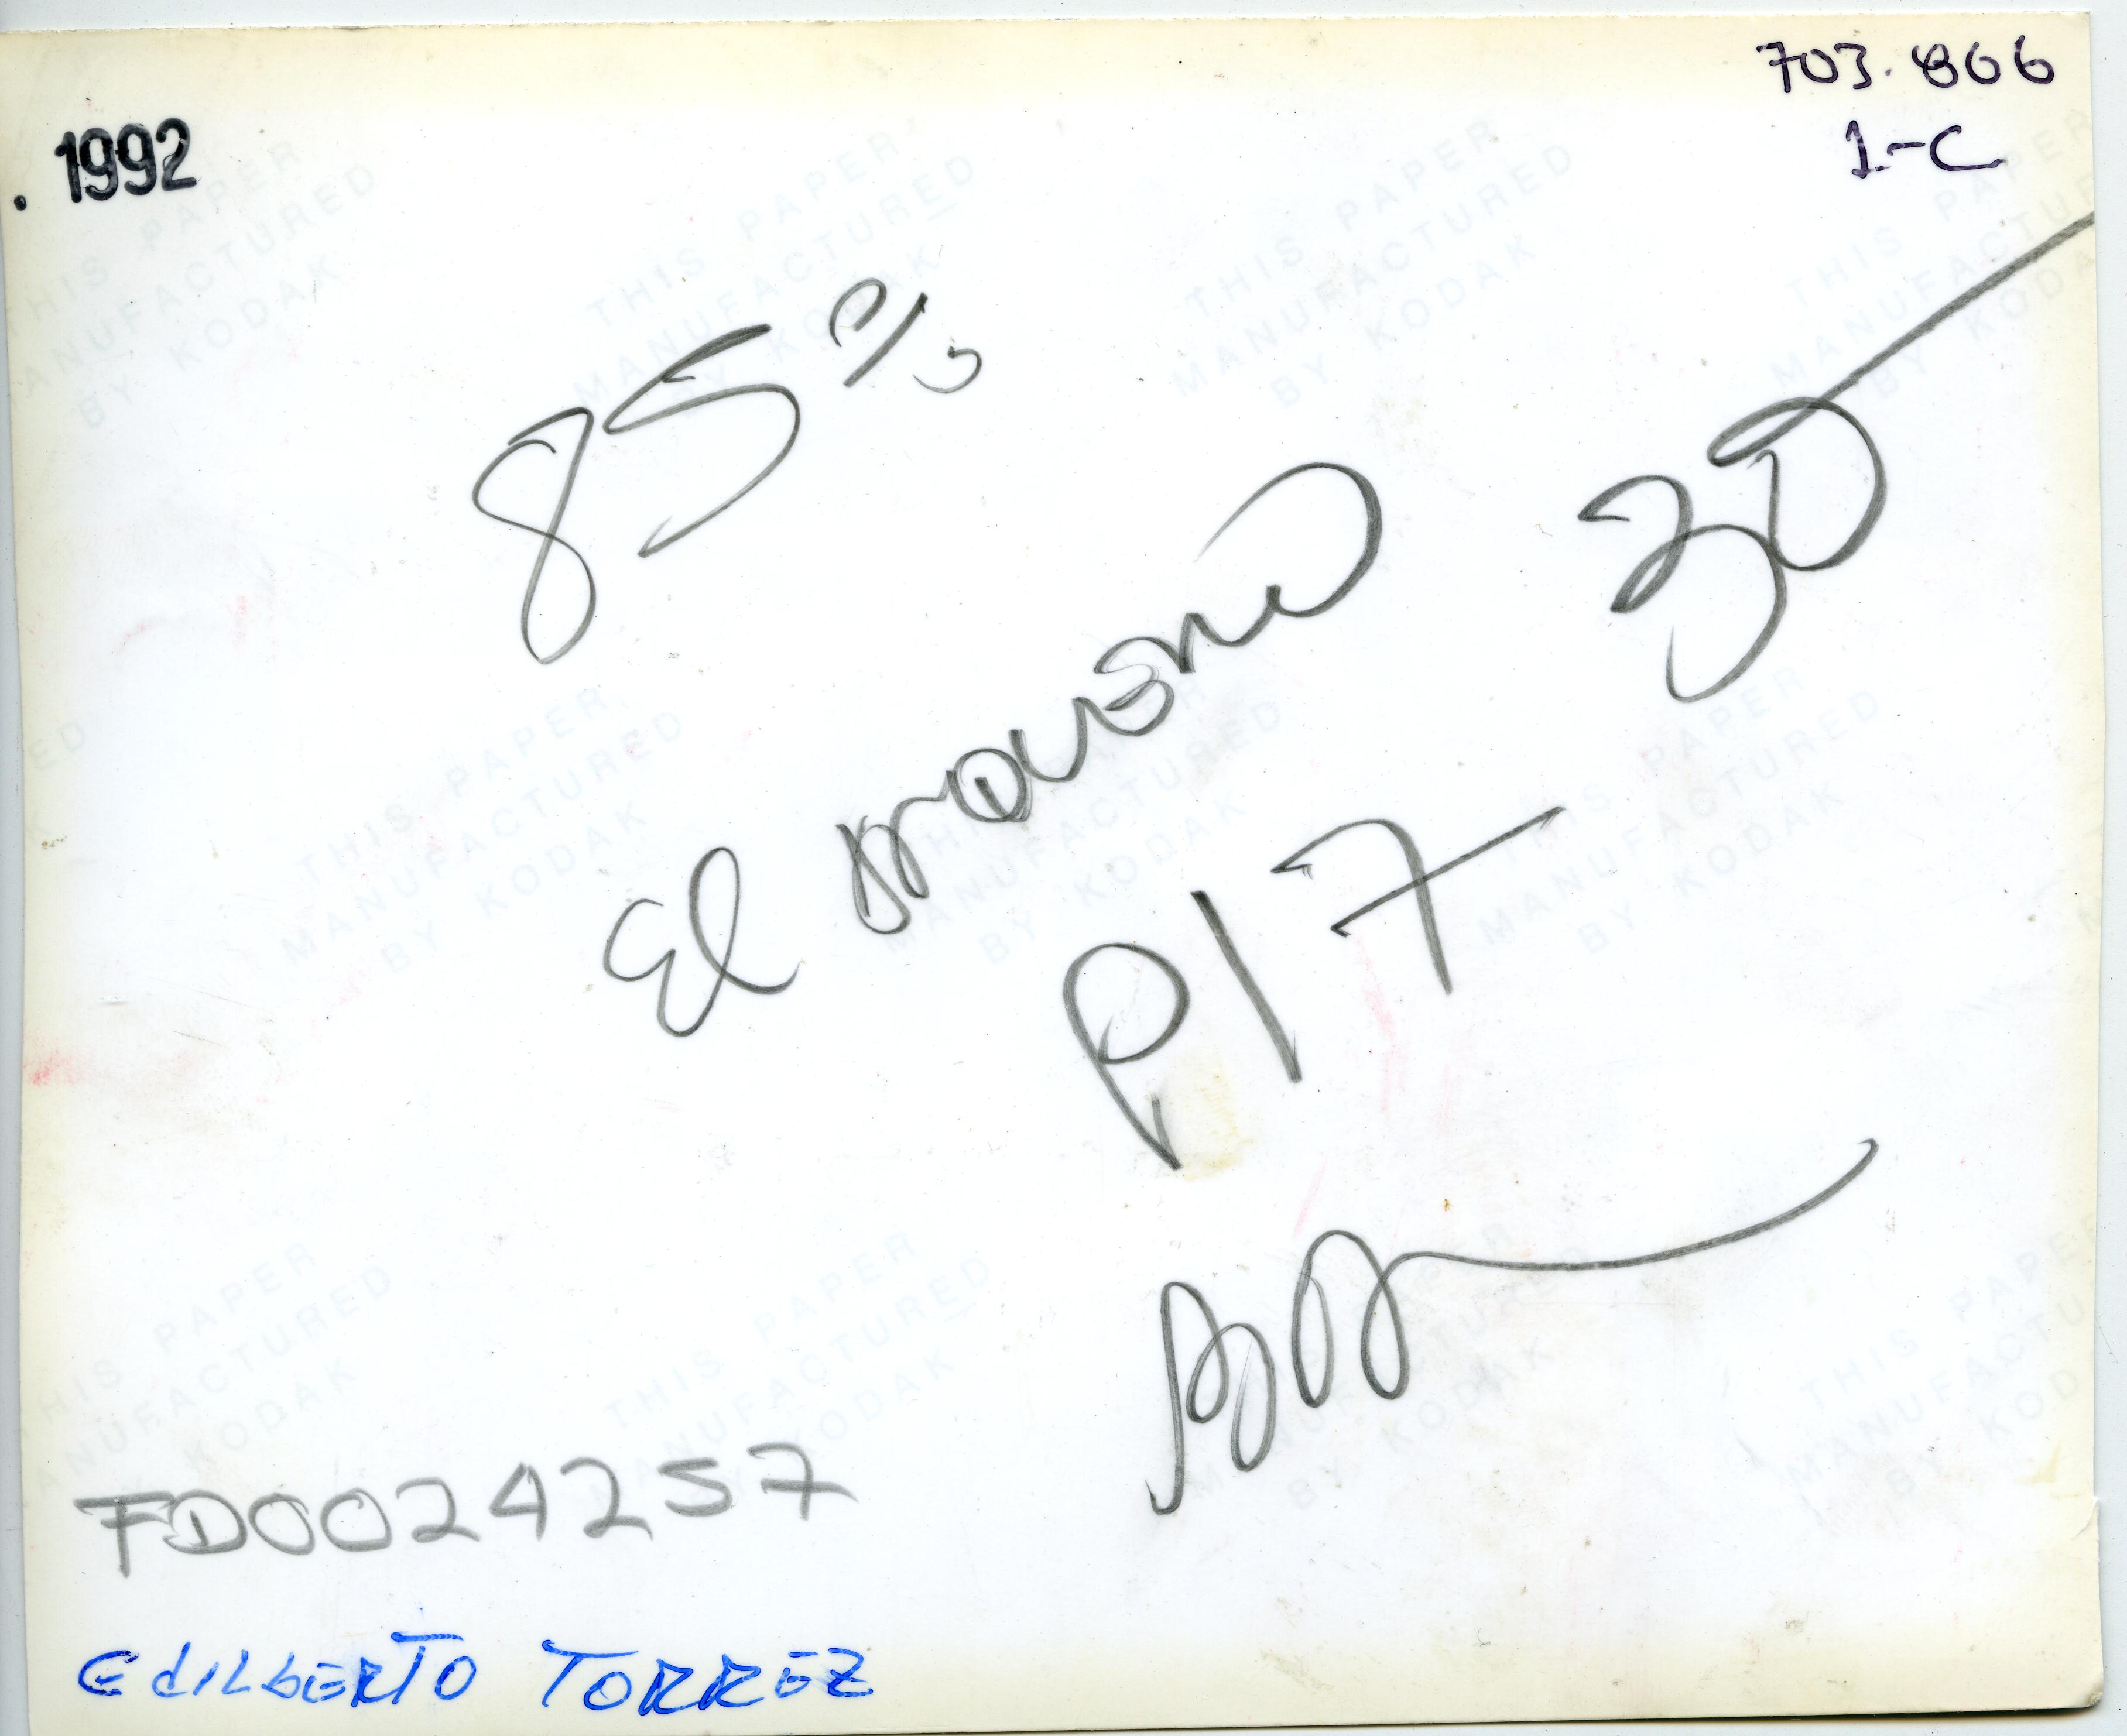 703.806
1-C
1992
85%
30
El
P17
FD0024257
EdILbERTO TORREZ
THIS PAPER
MANUFACTURED
BY KODAK